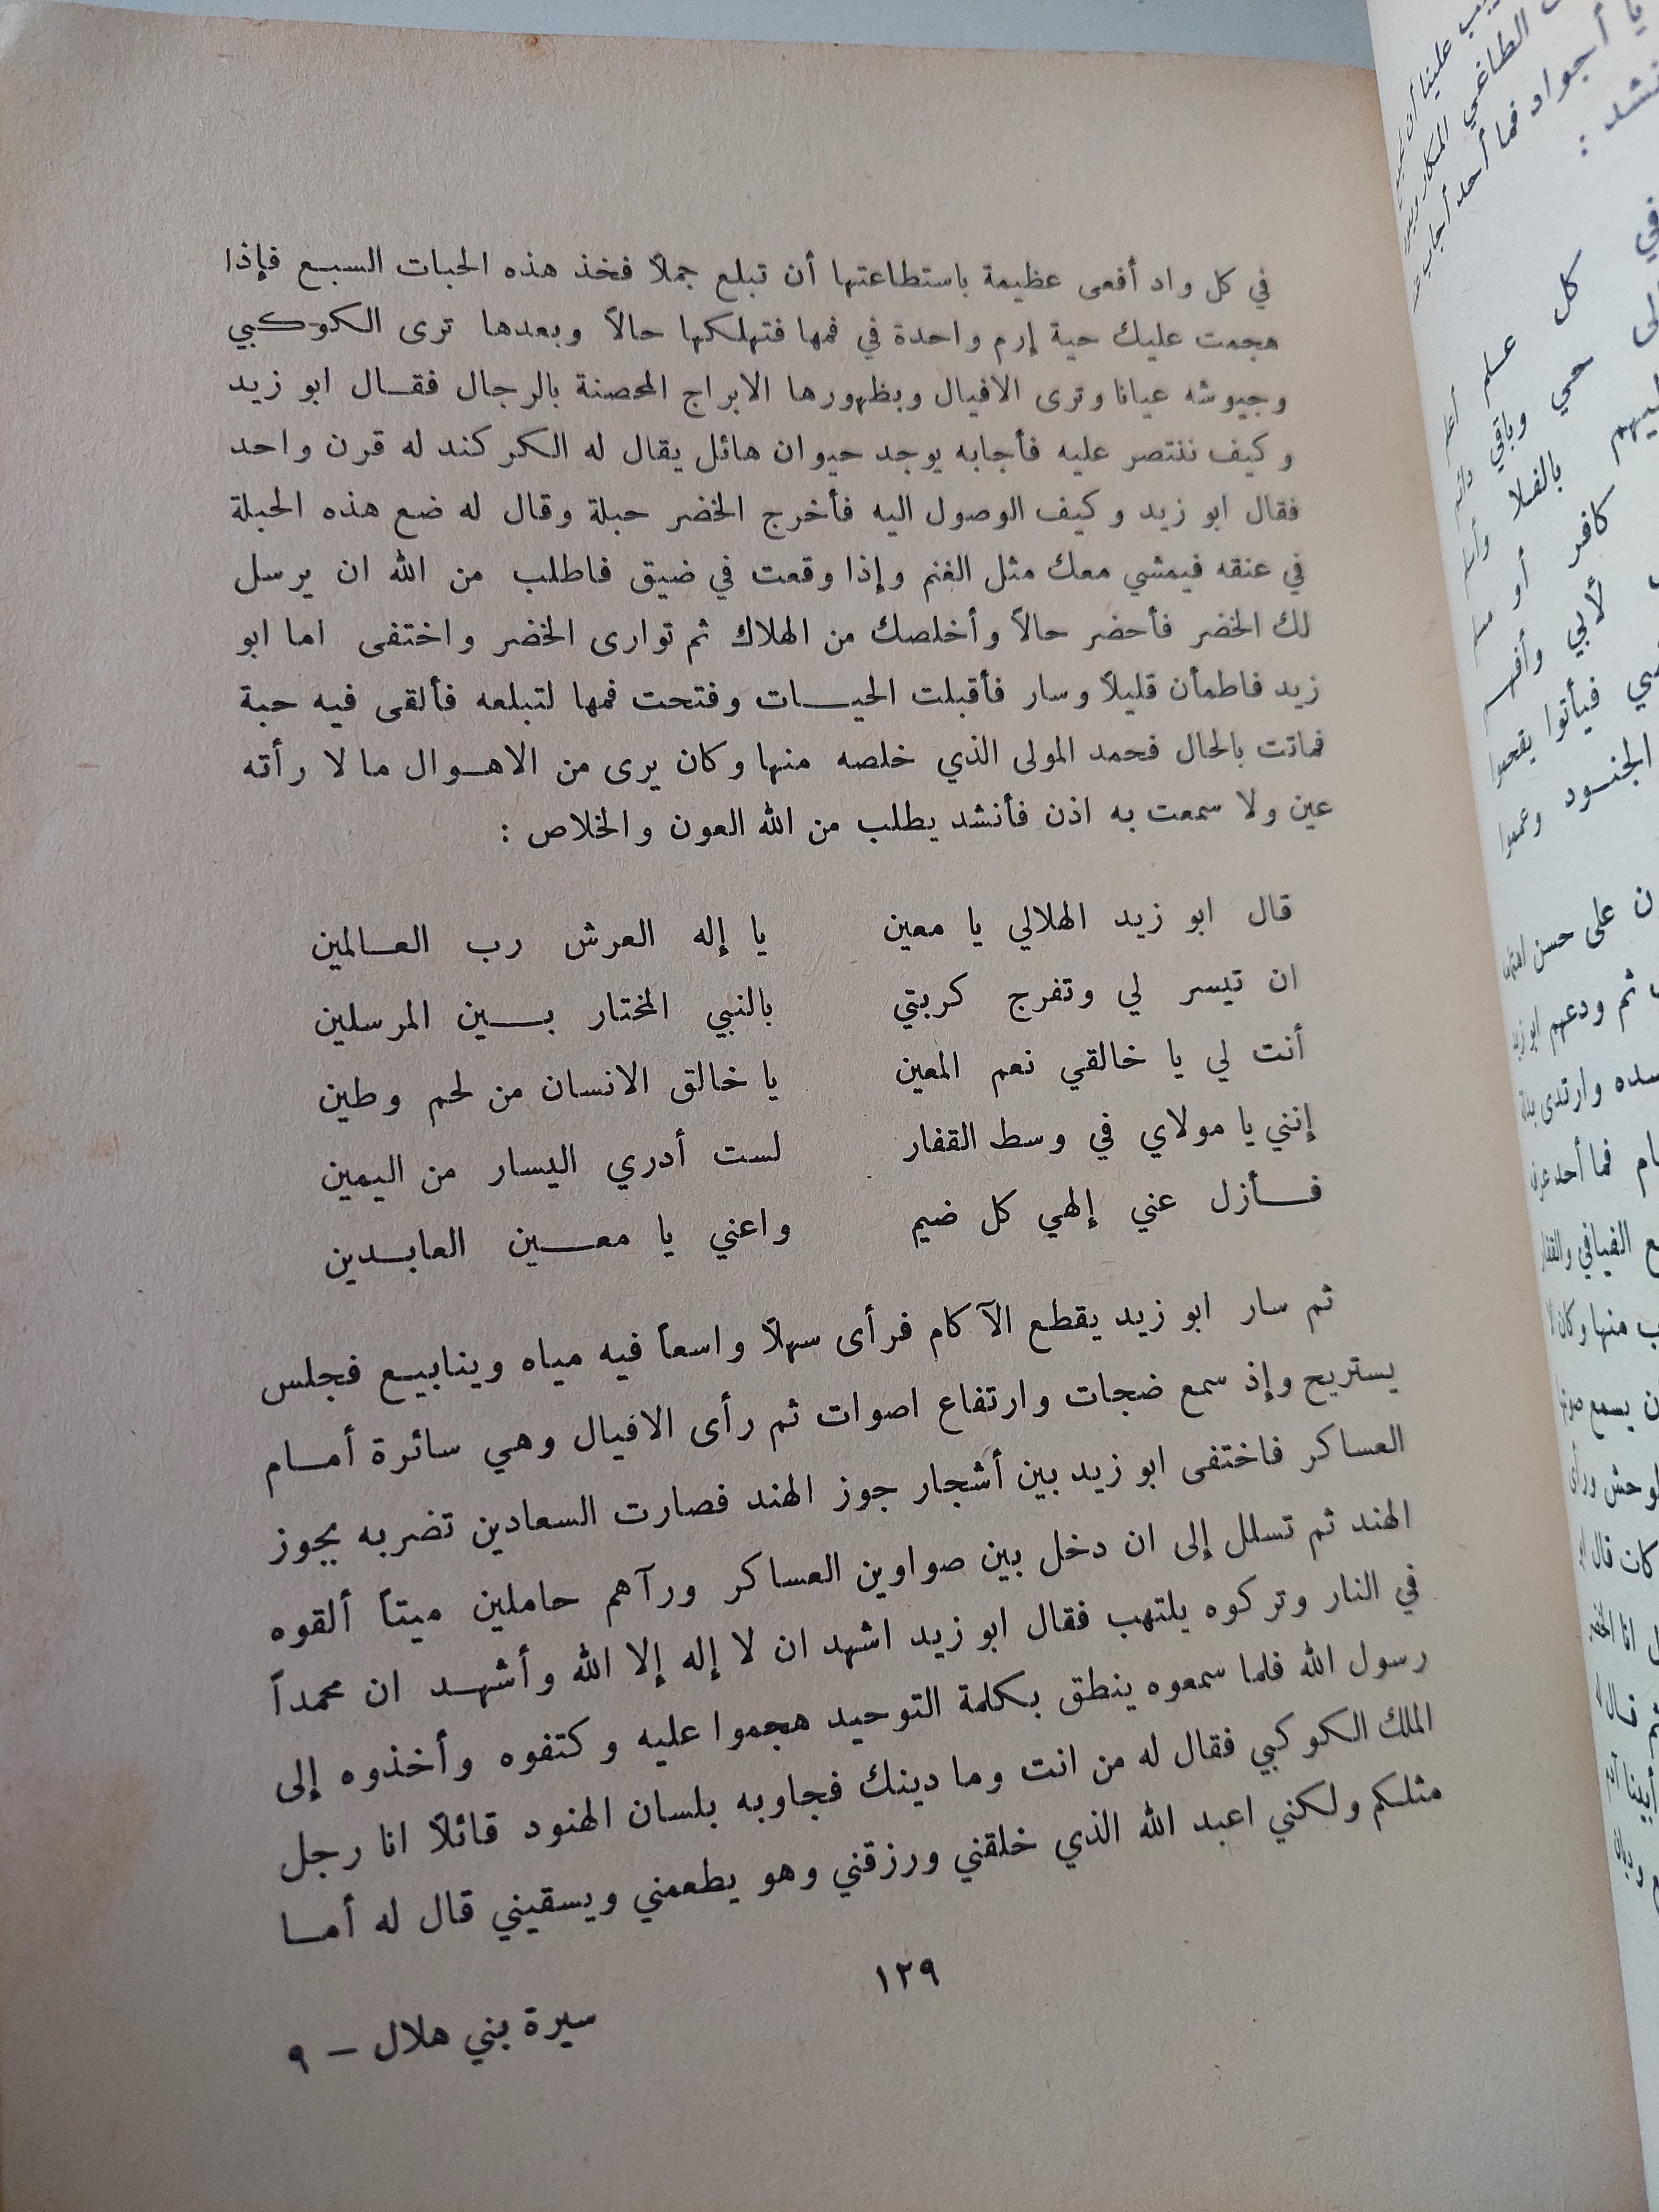 في كل واد أفعى عظيمة باستطاعتها أن تبلع جملاً فخذ هذه الحبات السبع فإذا
هجمت عليك حية إرم واحدة في فمها فتهلكها حالاً وبعدها ترى الكوكبي
وجيوشه عيانا وترى الافيال وبظهورها الابراج المحصنة بالرجال فقال ابو زيد
وكيف ننتصر عليه فأجابه يوجد حيوان هائل يقال له الكركند له قرن واحد
فقال ابو زيد وكيف الوصول اليه فأخرج الخضر حبلة وقال له ضع هذه الحبلة
في عنقه فيمشي معك مثل الغنم وإذا وقعت في ضيق فاطلب من الله ان يرسل
لك الخضر فأحضر حالاً وأخلصك من الهلاك ثم توارى الخضر واختفى اما ابو
زيد فاطمأن قليلاً وسار فأقبلت الحيات وفتحت فمها لتبلعه فألقى فيه حبة
فماتت بالحال فحمد المولى الذي خلصه منها وكان يرى من الاهوال ما لا رأته
عين ولا سمعت به اذن فأنشد يطلب من الله العون والخلاص :
قال ابو زيد الهلالي يا معين يا إله العرش رب العالمين
ان تيسر لي وتفرج كربتي بالنبي المختار بين المرسلين
أنت لي يا خالقي نعم المعين يا خالق الانسان من لحم وطين
إنني يا مولاي في وسط القفار لست أدري اليسار من اليمين
فأزل عني إلهي كل ضيم واعني يا معين العابدين
ثم سار ابو زيد يقطع الآكام فرأى سهلاً واسعاً فيه مياه وينابيع فجلس
يستريح وإذ سمع ضجات وارتفاع اصوات ثم رأى الافيال وهي سائرة أمام
العساكر فاختفى ابو زيد بين أشجار جوز الهند فصارت السعادين تضربه بجوز
الهند ثم تسلل إلى ان دخل بين صواوين العساكر ورآهم حاملين ميتاً ألقوه
في النار وتركوه يلتهب فقال ابو زيد اشهد ان لا إله إلا الله وأشهد ان محمداً
رسول الله فلما سمعوه ينطق بكلمة التوحيد هجموا عليه وكتفوه وأخذوه إلى
الملك الكوكبي فقال له من انت وما دينك فجاوبه بلسان الهنود قائلاً انا رجل
مثلكم ولكني اعبد الله الذي خلقني ورزقني وهو يطعمني ويسقيني قال له أما
١٢٩
سيرة بني هلال – ٩